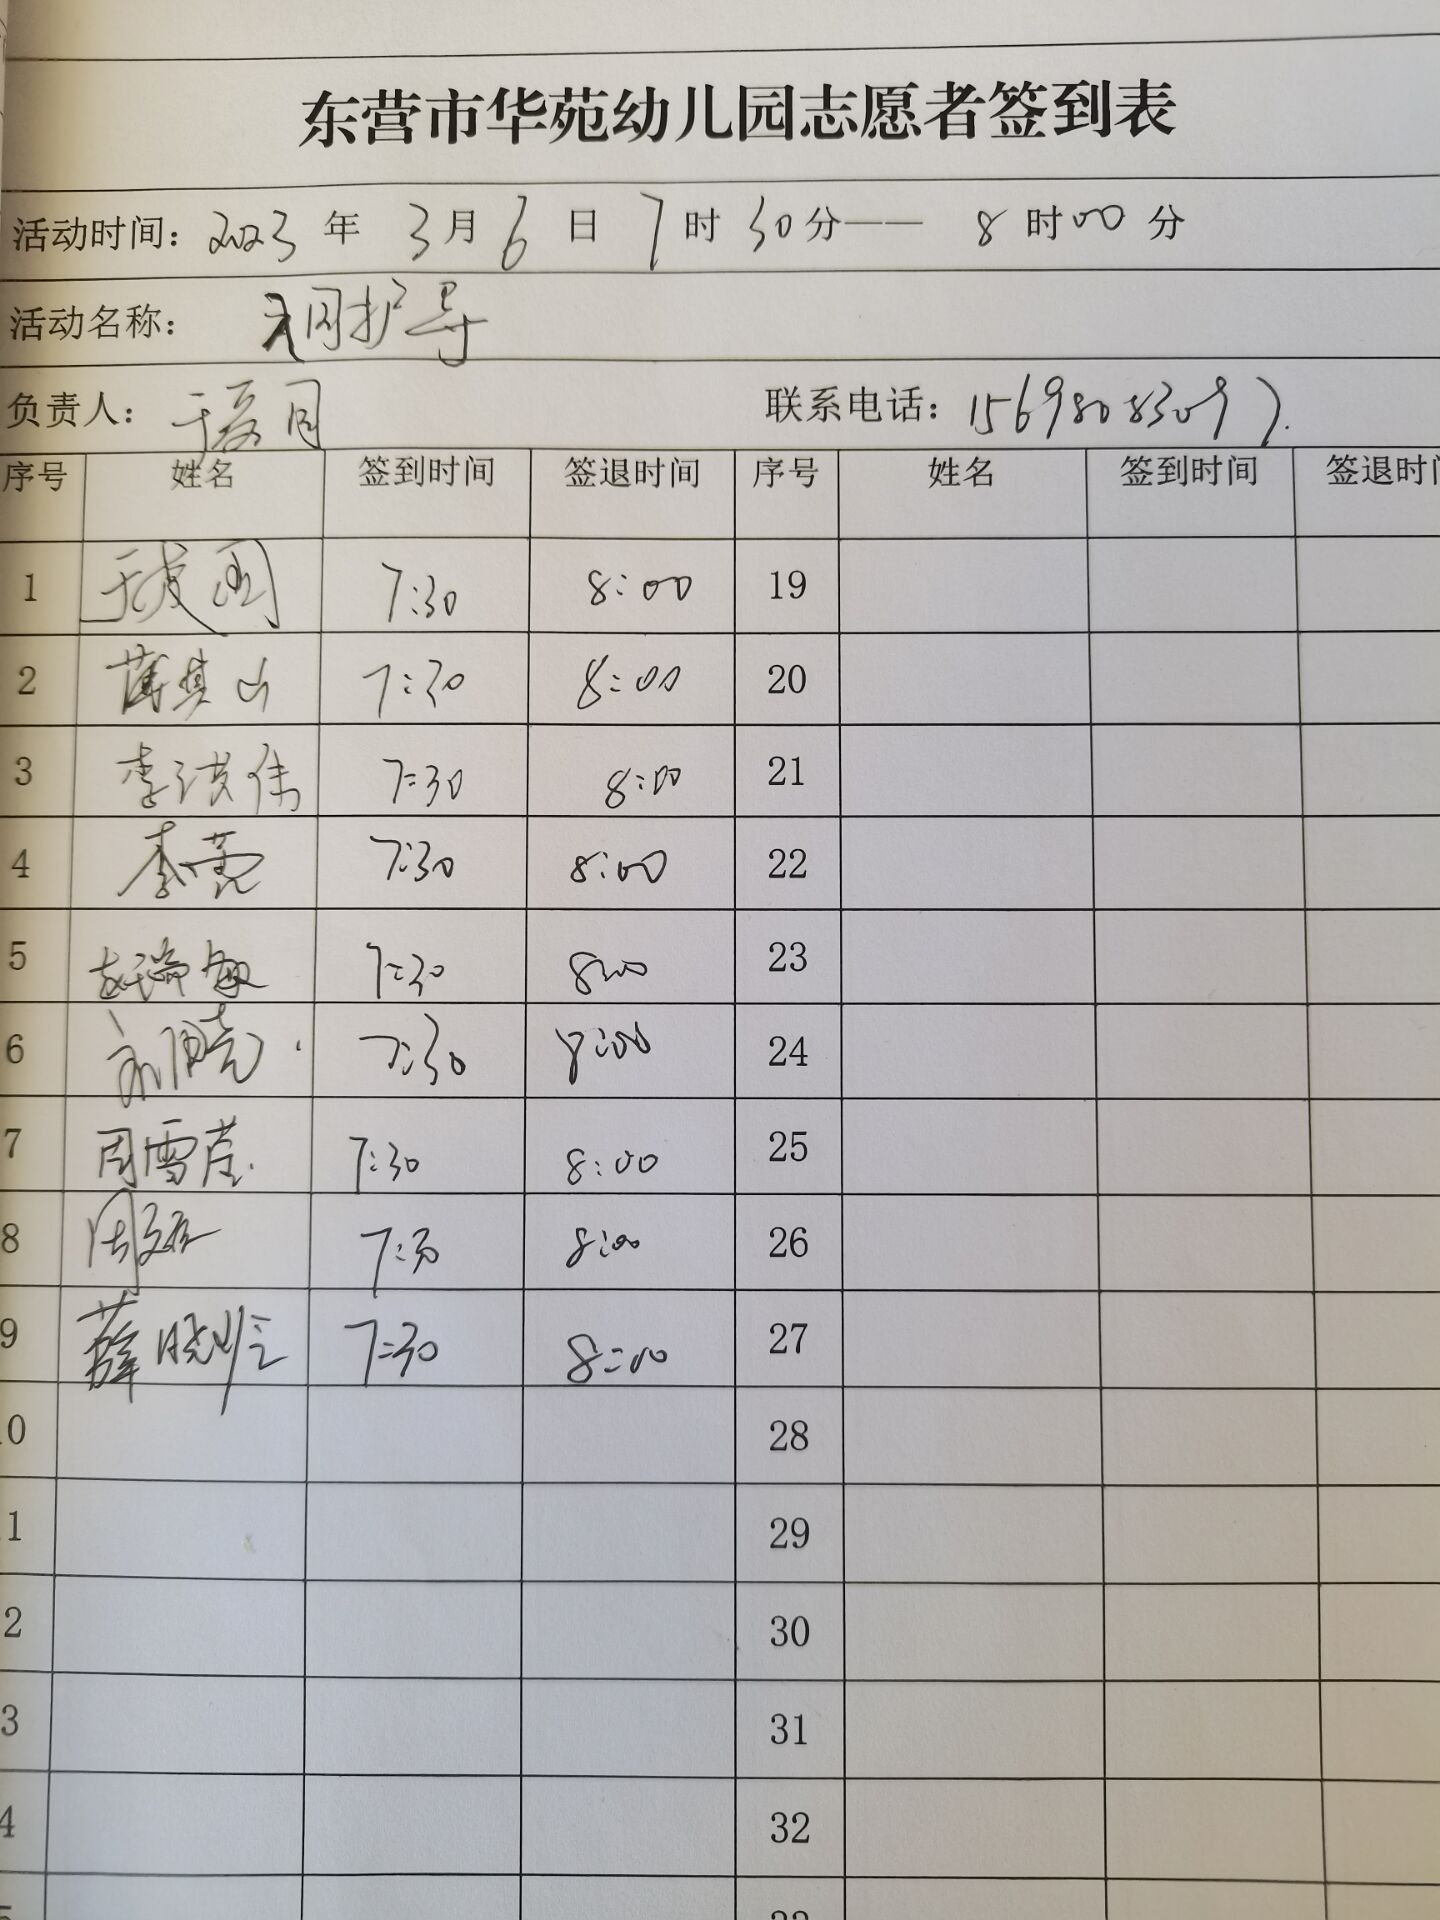 东营市华苑幼儿园志愿者签到表
活动时间: 2023 年 3 月 6 日 7 时 30 分—— 8 时 00 分
活动名称: 护导
负责人: 于 月 联系电话:
序号 姓名 签到时间 签退时间 序号 姓名 签到时间 签退时
1 于 7:30 8:00 19
2 薄其山 7:30 8:00 20
3 李洪伟 7:30 8:00 21
4 李 7:30 8:00 22
5 赵瑞敏 7:30 8:00 23
6 7:30 8:00 24
7 周雪莹. 7:30 8:00 25
8 周 7:30 8:00 26
9 薛晓 7:30 8:00 27
0 28
1 29
2 30
3 31
4 32